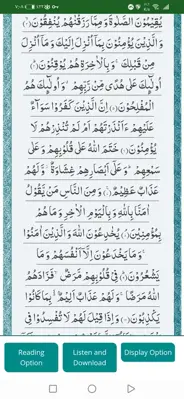 يُقِيْمُوْنَ الصَّلٰوةَ وَمِمَّا رَزَقْنٰهُمْ يُنْفِقُوْنَ
وَالَّذِيْنَ يُؤْمِنُوْنَ بِمَآ اُنْزِلَ اِلَيْكَ وَمَآ اُنْزِلَ
مِنْ قَبْلِكَ وَبِالْاٰخِرَةِ هُمْ يُوْقِنُوْنَ
اُولٰٓئِكَ عَلٰى هُدًى مِّنْ رَّبِّهِمْ وَاُولٰٓئِكَ هُمُ
الْمُفْلِحُوْنَ اِنَّ الَّذِيْنَ كَفَرُوْا سَوَآءٌ
عَلَيْهِمْ ءَاَنْذَرْتَهُمْ اَمْ لَمْ تُنْذِرْهُمْ لَا
يُؤْمِنُوْنَ خَتَمَ اللّٰهُ عَلٰى قُلُوْبِهِمْ وَعَلٰى
سَمْعِهِمْ وَعَلٰٓى اَبْصَارِهِمْ غِشَاوَةٌ وَّلَهُمْ
عَذَابٌ عَظِيْمٌ وَمِنَ النَّاسِ مَنْ يَّقُوْلُ
اٰمَنَّا بِاللّٰهِ وَبِالْيَوْمِ الْاٰخِرِ وَمَا هُمْ
بِمُؤْمِنِيْنَ يُخٰدِعُوْنَ اللّٰهَ وَالَّذِيْنَ اٰمَنُوْا
وَمَا يَخْدَعُوْنَ اِلَّآ اَنْفُسَهُمْ وَمَا
يَشْعُرُوْنَ فِيْ قُلُوْبِهِمْ مَّرَضٌ فَزَادَهُمُ
اللّٰهُ مَرَضًا وَلَهُمْ عَذَابٌ اَلِيْمٌ بِمَا كَانُوْا
يَكْذِبُوْنَ وَاِذَا قِيْلَ لَهُمْ لَا تُفْسِدُوْا فِى
Reading Option
Listen and Download
Display Option